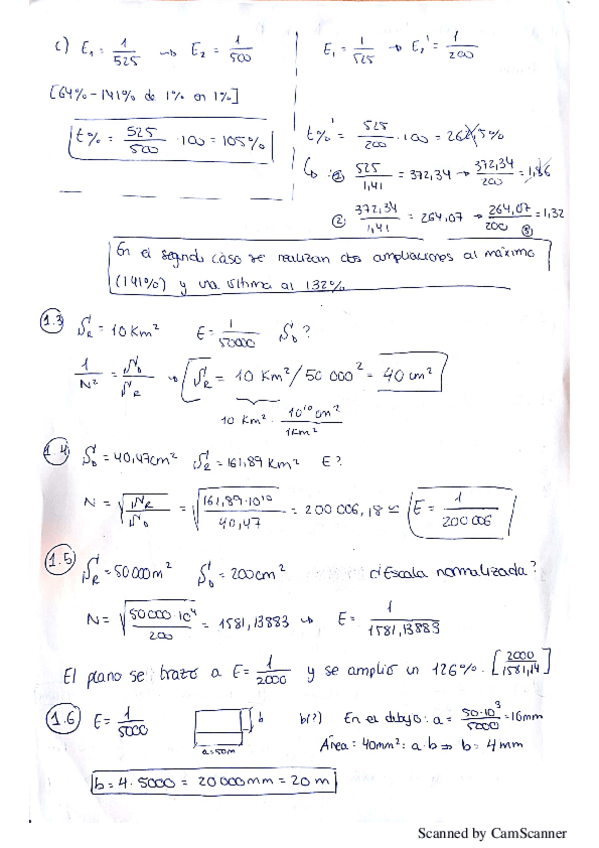 c) E₁ = 1/525 → E₂ = 1/500
[64% - 141% de 1% en 1%]
t% = 525/500 · 100 = 105%
E₁ = 1/525 → E₂' = 1/200
t%' = 525/200 · 100 = 262,5%
↳ ① 525/1,41 = 372,34 → 372,34/200 = 1,86
② 372,34/1,41 = 264,07 → 264,07/200 = 1,32 ③
En el segundo caso se realizan dos ampliaciones al máximo
(141%) y una última al 132%
1.3 S_R = 10 Km² E = 1/50000 S_D?
1/N² = S_D/S_R → S_R = 10 Km²/50 000² = 40 cm²
10 Km² · 10¹⁰ cm²/1Km²
1.4 S_D = 40,47cm² S_R = 161,89 Km² E?
N = √(S_R/S_D) = √(161,89·10¹⁰/40,47) = 200 006,18 ≃ E = 1/200 006
1.5 S_R = 50 000 m² S_D = 200 cm² ¿Escala normalizada?
N = √(50 000·10⁴/200) = 1581,13883 → E = 1/1581,13883
El plano se trazo a E = 1/2000 y se amplio un 126%. [2000/1581,14]
1.6 E = 1/5000 b a=50m b(?) En el dibujo: a = 50·10³/5000 = 16mm
Área = 40mm² : a·b ⇒ b = 4mm
b = 4 · 5000 = 20 000mm = 20 m
Scanned by CamScanner